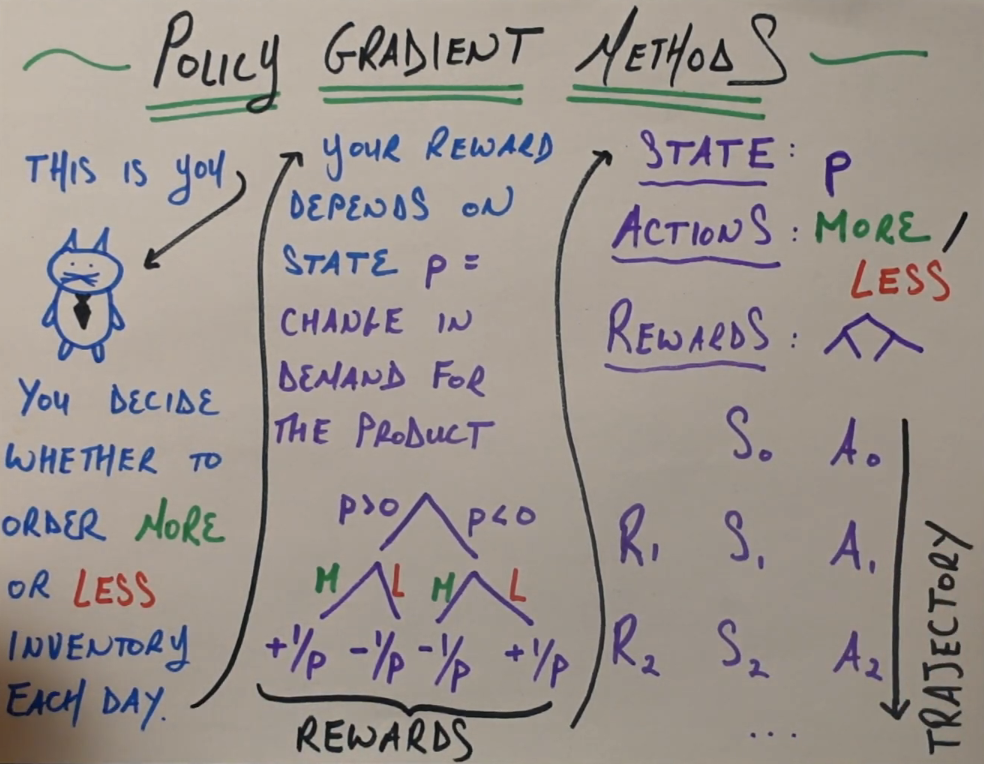 POLICY GRADIENT METHODS
THIS IS YOU
YOU DECIDE
WHETHER TO
ORDER MORE
OR LESS
INVENTORY
EACH DAY.
YOUR REWARD
DEPENDS ON
STATE p =
CHANGE IN
DEMAND FOR
THE PRODUCT
p>0 p<0
M L M L
+1/p -1/p -1/p +1/p
REWARDS
STATE: p
ACTIONS: MORE /
LESS
REWARDS:
S0 A0
R1 S1 A1
R2 S2 A2
...
TRAJECTORY